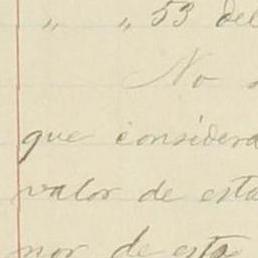 „ „ 53 del
No
que considera
valor de esta
nor de esta